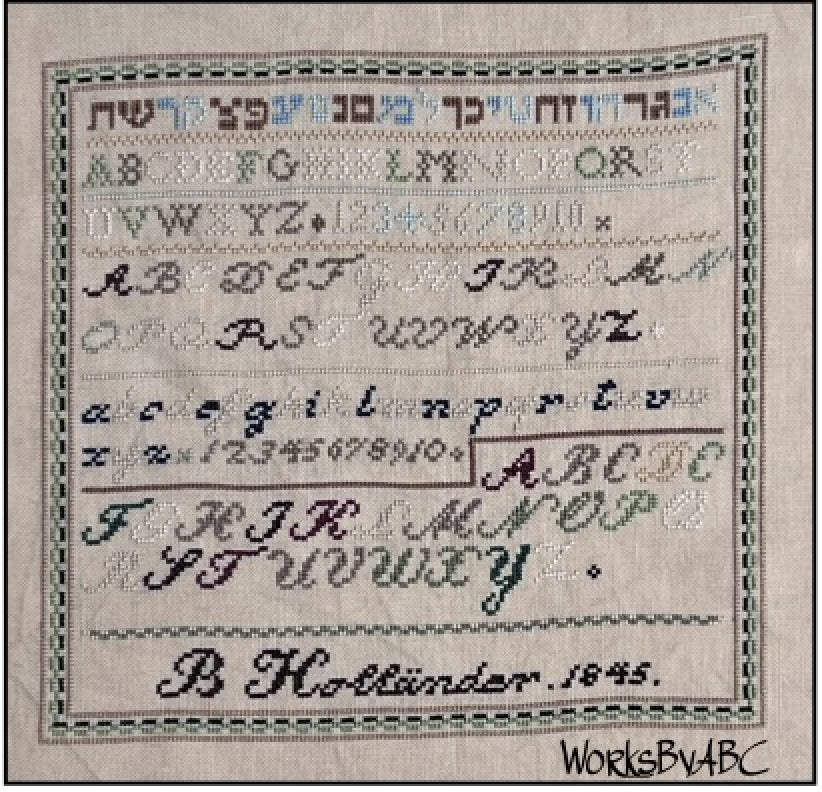 אבגדהוזחטיכךלמםנסעפצקרשת
ABCDEFGHIKLMNOPQRST
UVWXYZ 12345678910 ×
ABCDEFGHIKLMN
OPQRSTUVWXYZ
abcdefghiklmnopqrstuvw
xyz 12345678910 ABCDE
FGHIKLMNOPQ
RSTUVWXYZ
B Holländer. 1845.
WorksByABC